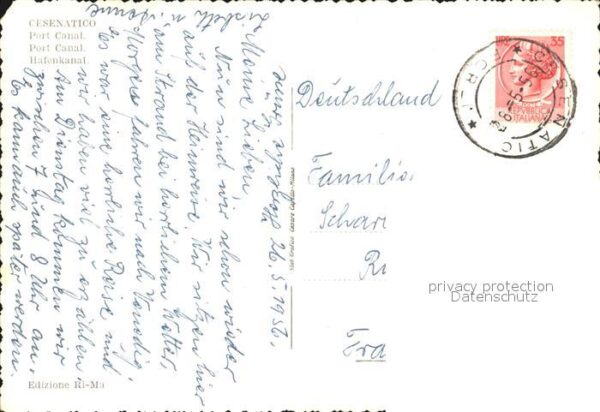 CESENATICO
Port Canal.
Port Canal.
Hafenkanal.
26.5.1956.
Meine Lieben
Nun sind wir schon wieder
auf der Heimreise. Wir sitzen hier
am Strand bei herrlichem Wetter,
Morgen fahren wir nach Venedig.
Es war eine herrliche Reise und
wir haben viel zu erzählen.
Am Dienstag kommen wir
zwischen 7 und 8 Uhr an.
Es kann auch später werden.
Edizione Ri-Ma
Deutschland
Familie
Schar
Ri
Fra
35
ITALIANA
CESENATICO
FORLI
privacy protection
Datenschutz